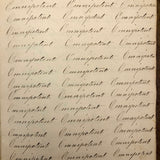 Omnipotent Omnipotent Omnipotent
Omnipotent Omnipotent Omnipotent
Omnipotent Omnipotent Omnipotent
Omnipotent Omnipotent Omnipotent
Omnipotent Omnipotent Omnipotent
Omnipotent Omnipotent Omnipotent
Omnipotent Omnipotent Omnipotent
Omnipotent Omnipotent Omnipotent
Omnipotent Omnipotent Omnipotent
Omnipotent Omnipotent Omnipotent